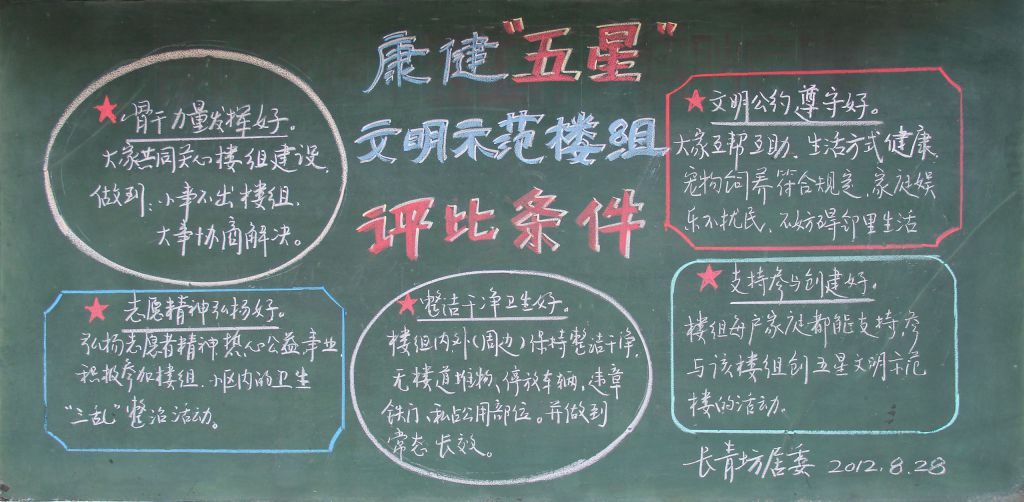 康健"五星"
文明示范楼组
评比条件
★骨干力量发挥好。
大家共同关心楼组建设,
做到:小事不出楼组,
大事协商解决。
★文明公约遵守好。
大家互帮互助、生活方式健康,
宠物饲养符合规定,家庭娱
乐不扰民,不妨碍邻里生活
★志愿精神弘杨好。
弘杨志愿者精神,热心公益事业,
积极参加楼组、小区内的卫生
"三乱"整治活动。
★整洁干净卫生好。
楼组内外(周边)保持整洁干净,
无楼道堆物、停放车辆,违章
铁门、私占公用部位。并做到
常态长效。
★支持参与创建好。
楼组每户家庭都能支持,参
与该楼组创五星文明示范
楼的活动。
长青坊居委 2012.8.28